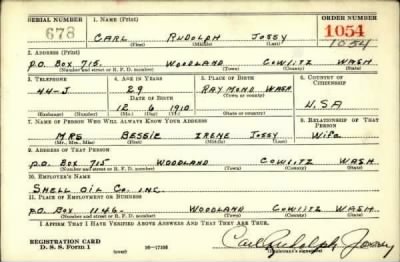 SERIAL NUMBER
678
1. NAME (Print)
CARL RUDOLPH JOSSY
(First) (Middle) (Last)
ORDER NUMBER
1054
1054
2. ADDRESS (Print)
P.O. BOX 715. WOODLAND COWLITZ WASH
(Number and street or R. F. D. number) (Town) (County) (State)
3. TELEPHONE
44-J
(Exchange) (Number)
4. AGE IN YEARS
29
DATE OF BIRTH
12 6 1910
(Mo.) (Day) (Yr.)
5. PLACE OF BIRTH
RAYMOND WASH
(Town or county)
(State or country)
6. COUNTRY OF CITIZENSHIP
U.S.A
7. NAME OF PERSON WHO WILL ALWAYS KNOW YOUR ADDRESS
MRS BESSIE IRENE JOSSY
(Mr., Mrs., Miss) (First) (Middle) (Last)
8. RELATIONSHIP OF THAT PERSON
WIFE
9. ADDRESS OF THAT PERSON
P.O. BOX 715 WOODLAND COWLITZ WASH
(Number and street or R. F. D. number) (Town) (County) (State)
10. EMPLOYER'S NAME
SHELL OIL CO. INC.
11. PLACE OF EMPLOYMENT OR BUSINESS
P.O. BOX 1146- WOODLAND COWLITZ WASH
(Number and street or R. F. D. number) (Town) (County) (State)
I AFFIRM THAT I HAVE VERIFIED ABOVE ANSWERS AND THAT THEY ARE TRUE.
REGISTRATION CARD
D. S. S. Form 1
(over)
16-17105
Carl Rudolph Jossy
(Registrant's signature)